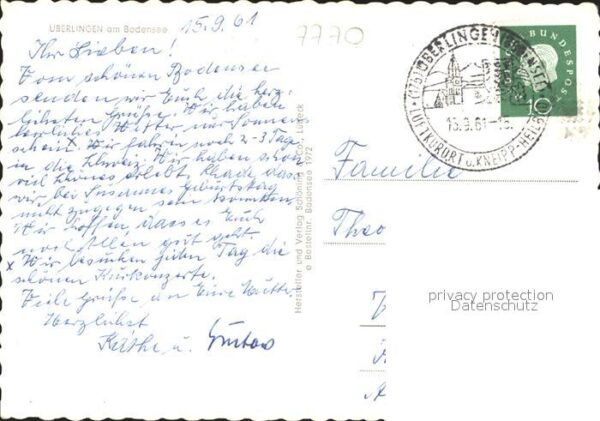 ÜBERLINGEN am Bodensee
15.9.61
7770
Ihr Lieben!
Vom schönen Bodensee
senden wir Euch die herz-
lichsten Grüße. Wir haben
herrliches Wetter nur Sonnen-
schein. Wir fahren noch 2-3 Tage
in die Schweiz. Wir haben schon
viel schönes erlebt. Schade das
wir bei Susannes Geburtstag
nicht zugegen sein konnten.
Wir hoffen, dass es Euch
noch allen gut geht.
x Wir besuchen jeden Tag die
schönen Kurkonzerte.
Viele Grüße an Eure Mutter.
Herzlichst
Käthe u. Gustav
Hersteller und Verlag Schöning & Co., Lübeck
Bestellnr. Bodensee 1972
(17b) ÜBERLINGEN (BODENSEE)
15.9.61
LUFTKURORT u. KNEIPP-HEILB
DEUTSCHE BUNDESPOST
10
Familie
Theo
privacy protection
Datenschutz